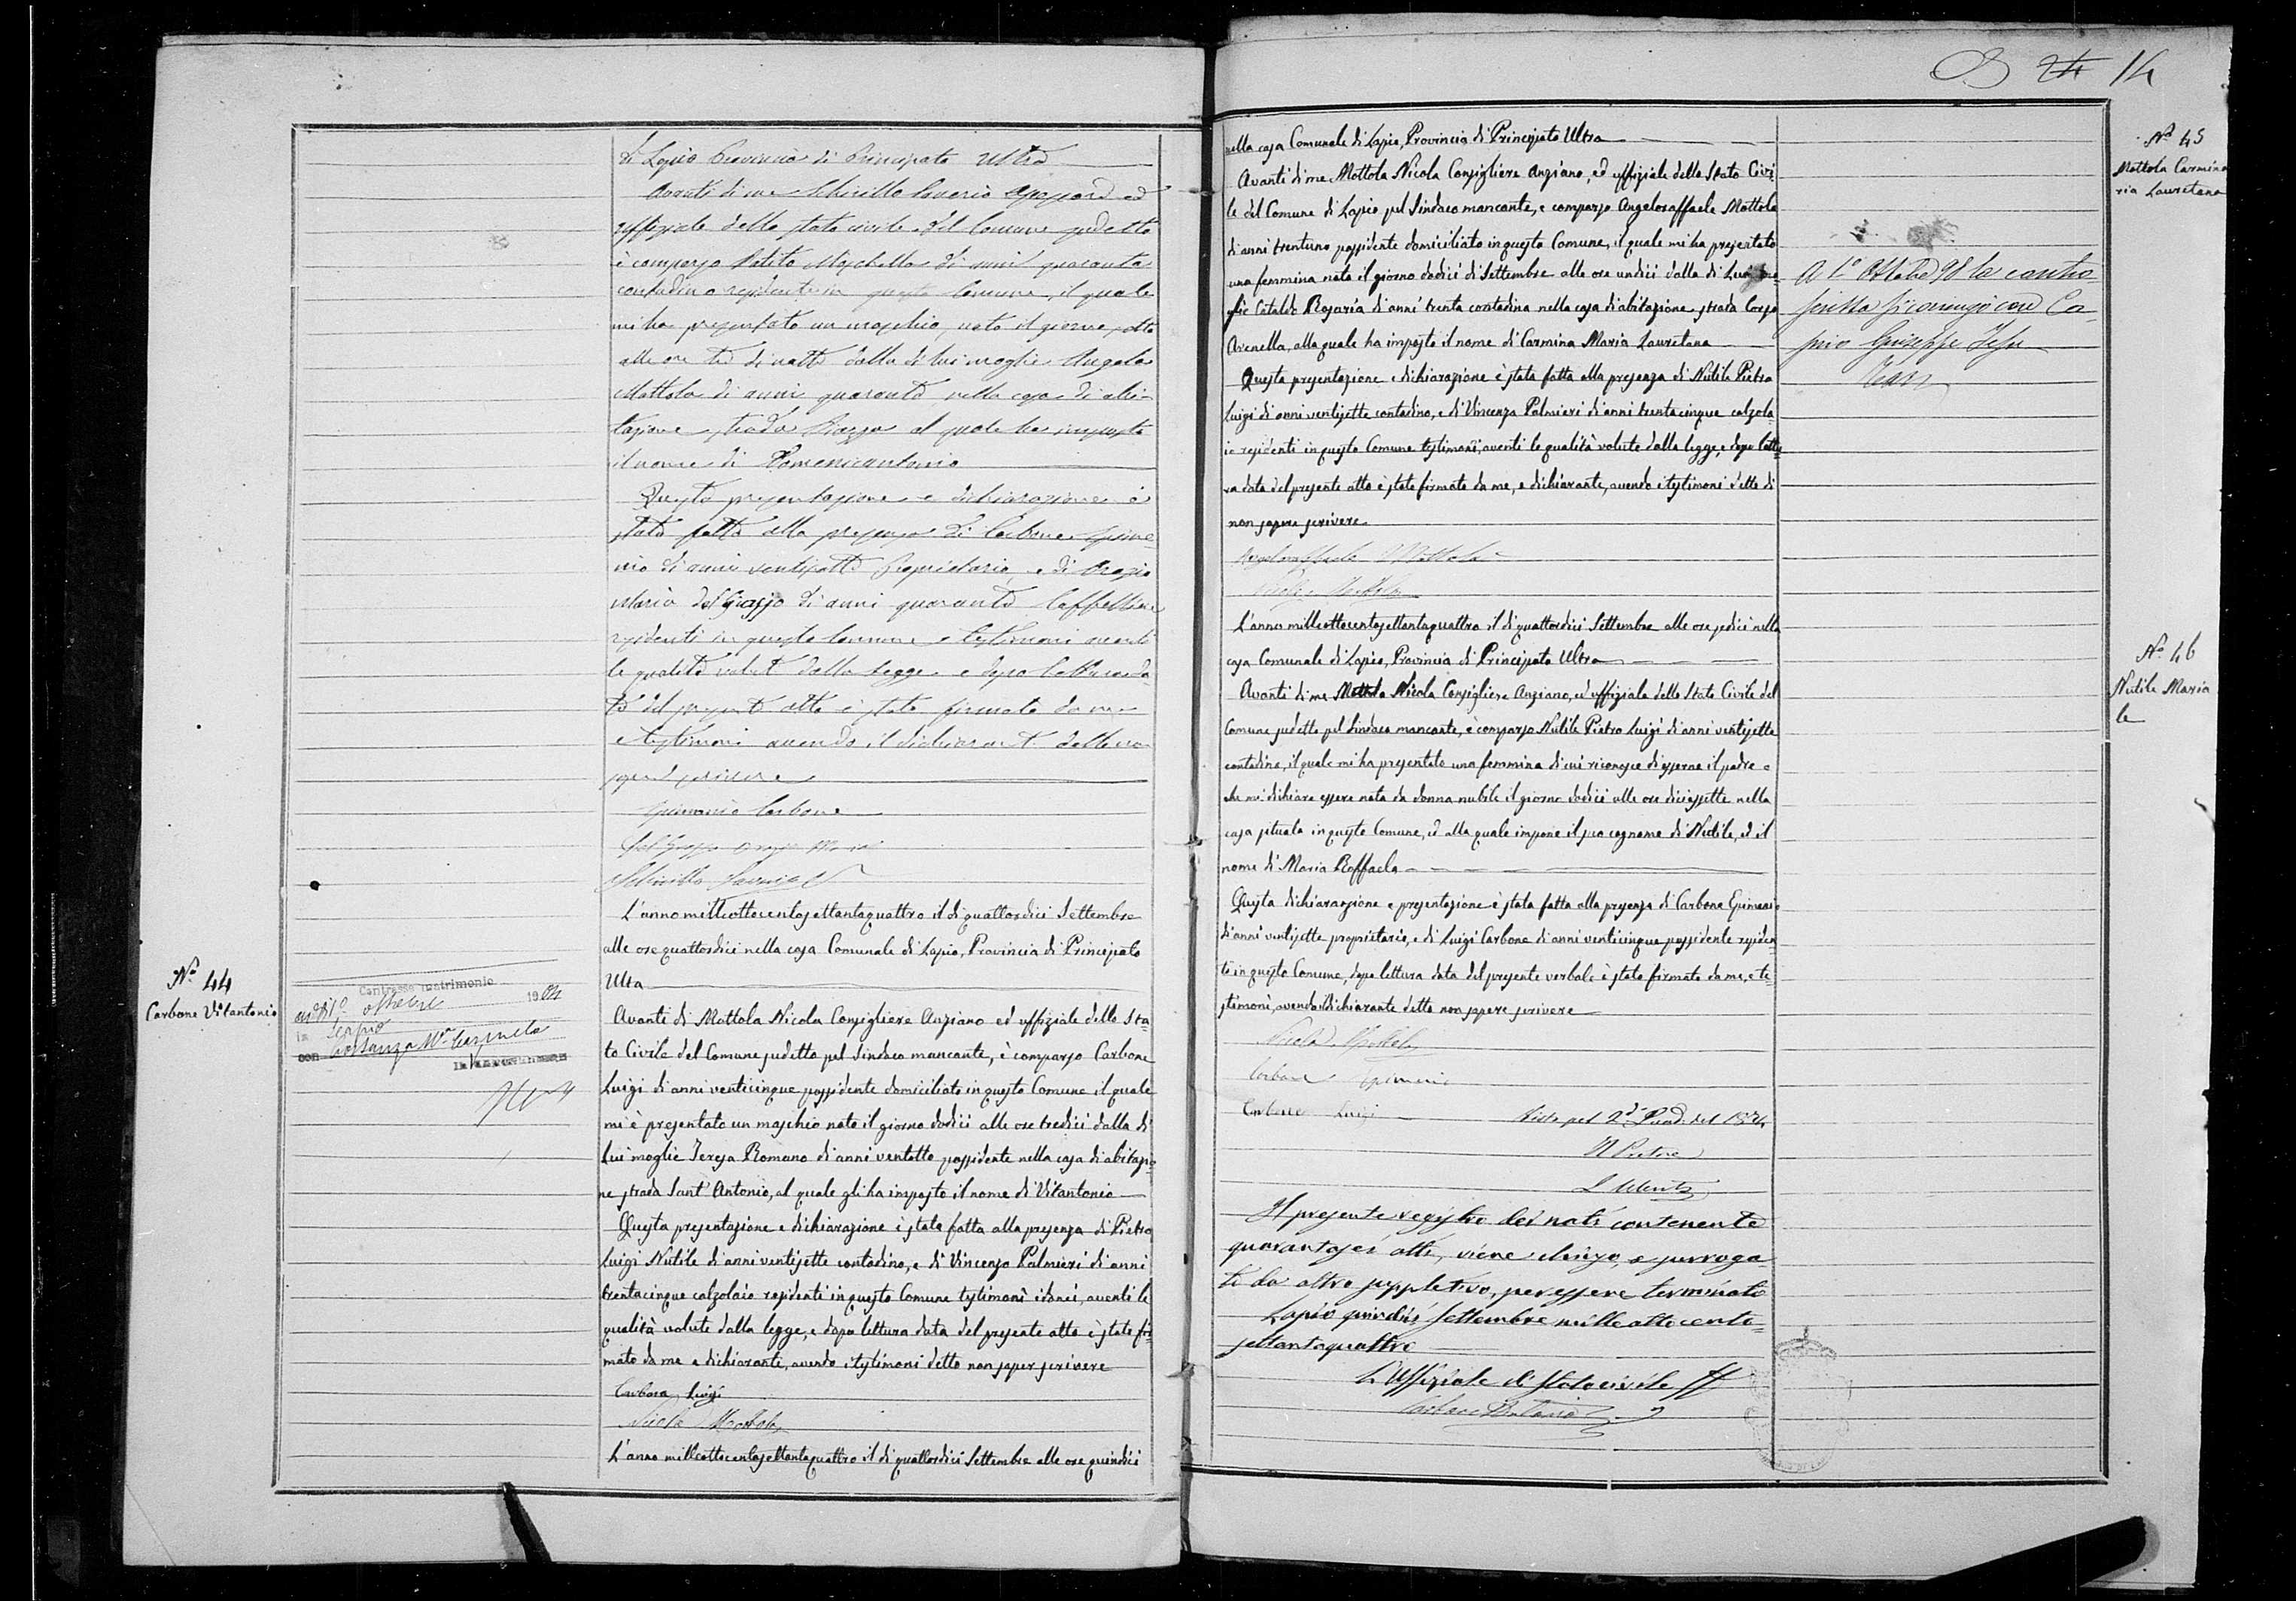 di Lapio Provincia di Principato Ultra
Avanti di me Schirillo Saverio Assessore ed
uffiziale dello stato civile del Comune sudetto
è comparso Potito Moschella di anni quaranta
contadino residente in questo Comune, il quale
mi ha presentato un maschio, nato il giorno sette
alle ore tre di notte dalla di lui moglie Angela
Mottola di anni quaranta nella casa di abi-
tazione strada Piazza al quale ha imposto
il nome di Domenicantonio
Questa presentazione e dichiarazione è
stata fatta alla presenza di Carbone Epime-
nio di anni ventisette proprietario, e di Orazio
Maria del Grosso di anni quaranta Caffettiere
residenti in questo Comune e testimoni aventi
le qualità volute dalla legge e dopo lettura da-
ta del presente atto è stato firmato da me
e testimoni avendo il dichiarante detto non
sapere scrivere
Epimenio Carbone
del Grosso Orazio Maria
Schirillo Saverio
Nº 44
Carbone Vitantonio
Contrasse matrimonio
addì 1º ottobre 1904
in Lapio
con Costanza Mª Carmela
L'anno milleottocentosettantaquattro il dì quattordici Settembre
alle ore quattordici nella casa Comunale di Lapio, Provincia di Principato
Ulta
Avanti di Mottola Nicola Consigliere Anziano ed uffiziale dello Sta-
to Civile del Comune sudetto pel Sindaco mancante, è comparso Carbone
Luigi di anni venticinque possidente domiciliato in questo Comune il quale
mi è presentato un maschio nato il giorno dodici alle ore tredici dalla di
lui moglie Teresa Romano di anni ventotto possidente nella casa di abitazio-
ne strada Sant'Antonio, al quale gli ha imposto il nome di Vitantonio
Questa presentazione e dichiarazione è stata fatta alla presenza di Pietro
Luigi Nutile di anni ventisette contadino, e di Vincenzo Palmieri di anni
trentacinque calzolaio residenti in questo Comune testimoni idonei, aventi le
qualità volute dalla legge, e dopo lettura data del presente atto è stato fir-
mato da me e dichiarante, avendo i testimoni detto non saper scrivere
Carbone Luigi
Nicola Mottola
L'anno milleottocentosettantaquattro il dì quattordici Settembre alle ore quindici
14
Nº 45
Mottola Carmina
ria Lauretana
nella casa Comunale di Lapio, Provincia di Principato Ultra
Avanti di me Mottola Nicola Consigliere Anziano, ed uffiziale dello Stato Civi
le del Comune di Lapio pel Sindaco mancante, e comparso Angeloraffaele Mottola
di anni trentuno possidente domiciliato in questo Comune, il quale mi ha presentato
una femmina nata il giorno dodici di Settembre alle ore undici dalla di lui mo
glie Cataldo Rosaria di anni trenta contadina nella casa di abitazione strada Corso
Avenella, alla quale ha imposto il nome di Carmina Maria Lauretana
Questa presentazione e dichiarazione è stata fatta alla presenza di Nutile Pietro
Luigi di anni ventisette contadino, e di Vincenzo Palmieri di anni trentacinque calzola
io residenti in questo Comune testimoni, aventi le qualità volute dalla legge, e dopo lettu-
ra data del presente atto è stato firmato da me, e dichiarante, avendo i testimoni detto di
non sapere scrivere
Angeloraffaele Mottola
Nicola Mottola
A 1º Ottobre 98 la contro-
scritta si coniugò con Ca-
Giuseppe
Nº 46
Nutile Maria
le
L'anno milleottocentosettantaquattro il dì quattordici Settembre alle ore sedici nella
casa Comunale di Lapio, Provincia di Principato Ultra
Avanti di me Mottola Nicola Consigliere Anziano, ed uffiziale dello Stato Civile del
Comune sudetto pel Sindaco mancante, è comparso Nutile Pietro Luigi di anni ventisette
contadino, il quale mi ha presentato una femmina di cui riconosce di esserne il padre e
che mi dichiara essere nata da donna nubile il giorno dodici alle ore diciassette nella
casa situata in questo Comune, ed alla quale impone il suo cognome di Nutile, ed il
nome di Maria Raffaela
Questa dichiarazione e presentazione è stata fatta alla presenza di Carbone Epimenio
di anni ventisette proprietario, e di Luigi Carbone di anni venticinque possidente residen
ti in questo Comune, dopo lettura data del presente verbale è stato firmato da me, e te-
stimoni, avendo il dichiarante detto non sapere scrivere
Nicola Mottola
Carbone Epimenio
Carbone Luigi
Visto pel 2º Quad. del 1874
Il Pretore
Il presente registro dei nati contenente
quarantasei atti, viene chiuso, e surroga
to da altro suppletivo, per essere terminato
Lapio quindici Settembre mille ottocento-
settantaquattro
L'Uffiziale di stato civile ff
Carbone